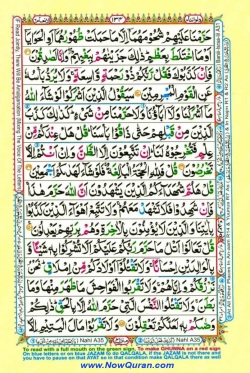 ١٣٣
حَرَّمْنَا عَلَيْهِمْ شُحُوْمَهُمَاۤ اِلَّا مَا حَمَلَتْ ظُهُوْرُهُمَاۤ اَوِ الْحَوَايَاۤ
اَوْ مَا اخْتَلَطَ بِعَظْمٍ ذٰلِكَ جَزَيْنٰهُمْ بِبَغْيِهِمْ وَاِنَّا لَصٰدِقُوْنَ
فَاِنْ كَذَّبُوْكَ فَقُلْ رَّبُّكُمْ ذُوْ رَحْمَةٍ وَّاسِعَةٍ وَلَا يُرَدُّ بَاْسُهٗ
عَنِ الْقَوْمِ الْمُجْرِمِيْنَ سَيَقُوْلُ الَّذِيْنَ اَشْرَكُوْا لَوْ شَآءَ اللّٰهُ
مَاۤ اَشْرَكْنَا وَلَاۤ اٰبَآؤُنَا وَلَا حَرَّمْنَا مِنْ شَيْءٍ كَذٰلِكَ كَذَّبَ
الَّذِيْنَ مِنْ قَبْلِهِمْ حَتّٰى ذَاقُوْا بَاْسَنَا قُلْ هَلْ عِنْدَكُمْ مِّنْ
عِلْمٍ فَتُخْرِجُوْهُ لَنَا اِنْ تَتَّبِعُوْنَ اِلَّا الظَّنَّ وَاِنْ اَنْتُمْ اِلَّا
تَخْرُصُوْنَ قُلْ فَلِلّٰهِ الْحُجَّةُ الْبَالِغَةُ فَلَوْ شَآءَ لَهَدٰىكُمْ اَجْمَعِيْنَ
قُلْ هَلُمَّ شُهَدَآءَكُمُ الَّذِيْنَ يَشْهَدُوْنَ اَنَّ اللّٰهَ حَرَّمَ هٰذَا
فَاِنْ شَهِدُوْا فَلَا تَشْهَدْ مَعَهُمْ وَلَا تَتَّبِعْ اَهْوَآءَ الَّذِيْنَ كَذَّبُوْا
بِاٰيٰتِنَا وَالَّذِيْنَ لَا يُؤْمِنُوْنَ بِالْاٰخِرَةِ وَهُمْ بِرَبِّهِمْ يَعْدِلُوْنَ
قُلْ تَعَالَوْا اَتْلُ مَا حَرَّمَ رَبُّكُمْ عَلَيْكُمْ اَلَّا تُشْرِكُوْا بِهٖ شَيْـًٔا
وَّبِالْوَالِدَيْنِ اِحْسَانًا وَلَا تَقْتُلُوْۤا اَوْلَادَكُمْ مِّنْ اِمْلَاقٍ نَحْنُ
نَرْزُقُكُمْ وَاِيَّاهُمْ وَلَا تَقْرَبُوا الْفَوَاحِشَ مَا ظَهَرَ مِنْهَا وَمَا
بَطَنَ وَلَا تَقْتُلُوا النَّفْسَ الَّتِيْ حَرَّمَ اللّٰهُ اِلَّا بِالْحَقِّ ذٰلِكُمْ
وَصّٰىكُمْ بِهٖ لَعَلَّكُمْ تَعْقِلُوْنَ وَلَا تَقْرَبُوْا مَالَ الْيَتِيْمِ اِلَّا
Nahl A35
Nahl A35
To read with a full mouth on the green sign, To make GHUNNA on a red sign
On blue letters or on blue JAZAM is do QALQALA, if the JAZAM is not there and
you have to pause on that AYAT so in that condition make QALQALA there as well
www.NowQuran.com